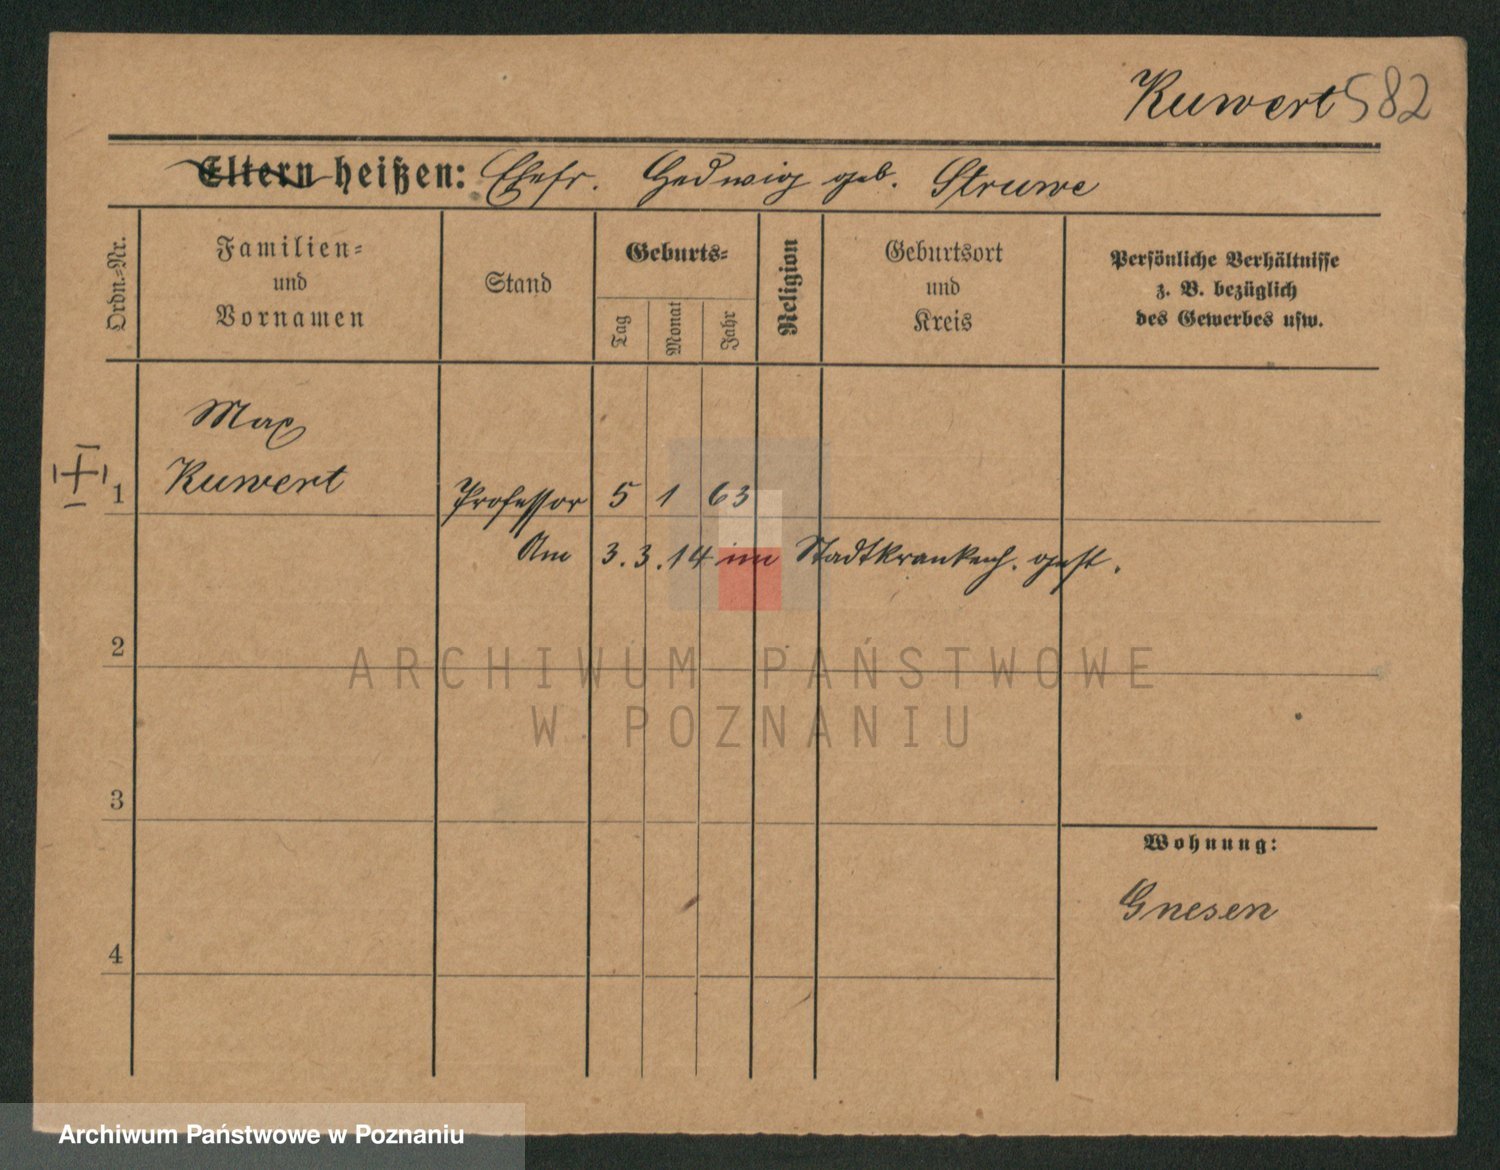 Kuwert 582
Eltern heißen: Ehefr. Hedwig geb. Struwe
Ordn.-Nr.
Familien-
und
Vornamen
Stand
Geburts-
Tag
Monat
Jahr
Religion
Geburtsort
und
Kreis
Persönliche Verhältnisse
z. B. bezüglich
des Gewerbes usw.
Max
1 Kuwert Professor 5 1 63
Am 3.3.14 im Stadtkrankenh. gest.
2
ARCHIWUM PAŃSTWOWE
W POZNANIU
3
Wohnung:
Gnesen
4
Archiwum Państwowe w Poznaniu